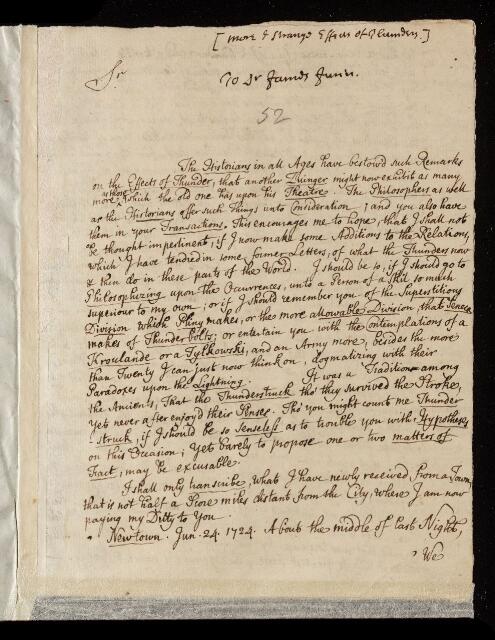 [more & strange Effects of Thunder.]
Sr
To Dr James Jurin.
52
The Historians in all Ages have bestow'd such Remarks
on the Effects of Thunder, that another Zuinger might now exhibit as many
more, as those which the old one has upon his Theatre. The Philosophers as well
as the Historians offer such Things unto Consideration; and you also have
them in your Transactions. This encourages me to hope, that I shall not
be thought impertinent, if I now make some Additions to the Relations,
which I have tendred in some former Letters, of what the Thunders now
& then do in these parts of the World. I should be so, if I should go to
Philosophizing upon the Occurrences, unto a Person of a Skil so much
superiour to my own; or if I should remember you of the Superstitious
Division which Pliny makes, or the more allowable Division, that Seneca
makes of Thunderbolts; or entertain you with the Contemplations of a
or a and an Army more, besides the more
than Twenty I can just now think on, dogmatizing with their
Paradoxes upon the Lightning. It was a Tradition among
the Ancients, That the Thunderstruck tho' they survived the Stroke,
yet never after enjoy'd their Sense. Tho' you might count me Thunder
struck, if I should be so senseless as to trouble you with Hypotheses
on this Occasion; yet barely to propose one or two matters of
Fact, may be excusable.
I shall only transcribe, what I have newly received from a Town,
that is not half a Score miles distant from the City, where I am now
paying my Duty to You.
" Newtown. Jun. 24. 1724. About the middle of last Night,
" We